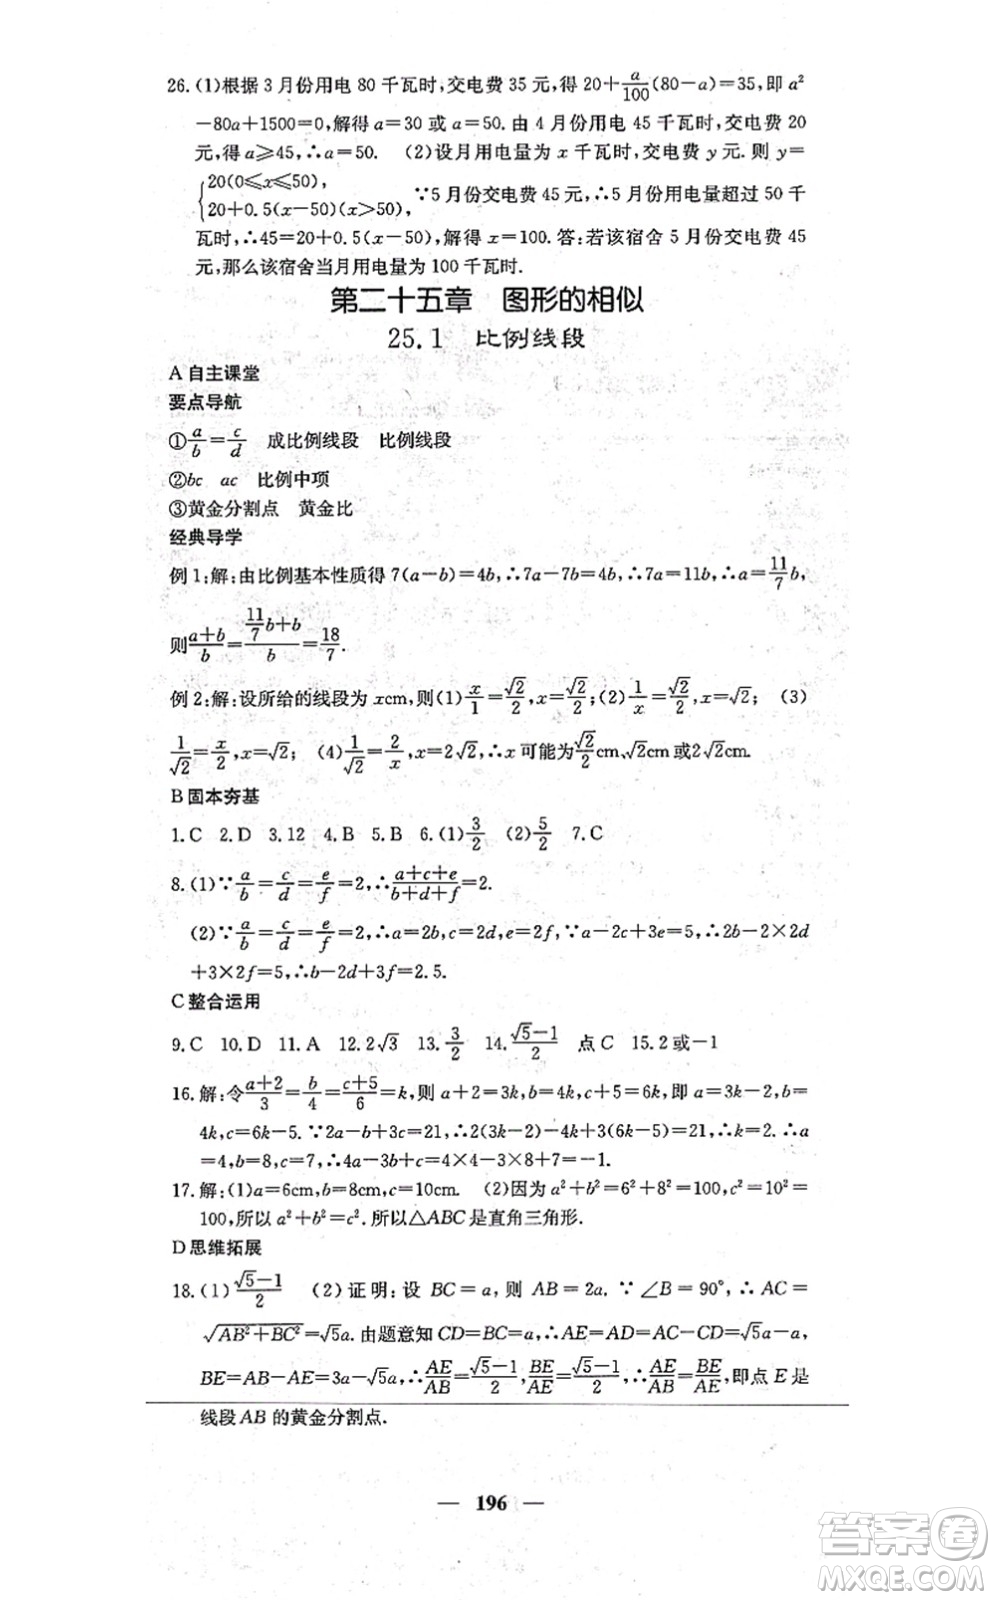 26. (1)根据 3 月份用电 80 千瓦时,交电费 35 元,得 20+a/100(80-a)=35,即 a²
-80a+1500=0,解得 a=30 或 a=50. 由 4 月份用电 45 千瓦时,交电费 20
元,得 a≥45,∴a=50. (2)设月用电量为 x 千瓦时,交电费 y 元. 则 y=
{20(0≤x≤50),
20+0.5(x-50)(x>50), ∵5 月份交电费 45 元,∴5 月份用电量超过 50 千
瓦时,∴45=20+0.5(x-50),解得 x=100. 答:若该宿舍 5 月份交电费 45
元,那么该宿舍当月用电量为 100 千瓦时.
第二十五章 图形的相似
25.1 比例线段
A 自主课堂
要点导航
①a/b=c/d 成比例线段 比例线段
②bc ac 比例中项
③黄金分割点 黄金比
经典导学
例 1:解:由比例基本性质得 7(a-b)=4b,∴7a-7b=4b,∴7a=11b,∴a=11/7b,
则(a+b)/b=(11/7b+b)/b=18/7.
例 2:解:设所给的线段为 xcm,则(1)x/1=√2/2,x=√2/2; (2)1/x=√2/2,x=√2; (3)
1/√2=x/2,x=√2; (4)1/√2=2/x,x=2√2,∴x 可能为√2/2cm、√2cm或2√2cm.
B 固本夯基
1. C 2. D 3. 12 4. B 5. B 6. (1)3/2 (2)5/2 7. C
8. (1)∵a/b=c/d=e/f=2,∴(a+c+e)/(b+d+f)=2.
(2)∵a/b=c/d=e/f=2,∴a=2b,c=2d,e=2f,∵a-2c+3e=5,∴2b-2×2d
+3×2f=5,∴b-2d+3f=2.5.
C 整合运用
9. C 10. D 11. A 12. 2√3 13. 3/2 14. (√5-1)/2 点 C 15. 2 或-1
16. 解:令(a+2)/3=b/4=(c+5)/6=k,则 a+2=3k,b=4k,c+5=6k,即 a=3k-2,b=
4k,c=6k-5. ∵2a-b+3c=21,∴2(3k-2)-4k+3(6k-5)=21,∴k=2. ∴a
=4,b=8,c=7,∴4a-3b+c=4×4-3×8+7=-1.
17. 解:(1)a=6cm,b=8cm,c=10cm. (2)因为 a²+b²=6²+8²=100,c²=10²=
100,所以 a²+b²=c². 所以△ABC是直角三角形.
D 思维拓展
18. (1)(√5-1)/2 (2)证明:设 BC=a,则 AB=2a. ∵∠B=90°,∴AC=
√(AB²+BC²)=√5a. 由题意知 CD=BC=a,∴AE=AD=AC-CD=√5a-a,
BE=AB-AE=3a-√5a,∴AE/AB=(√5-1)/2,BE/AE=(√5-1)/2,∴AE/AB=BE/AE,即点 E 是
线段 AB 的黄金分割点.
— 196 —
答案卷
MXQE.COM